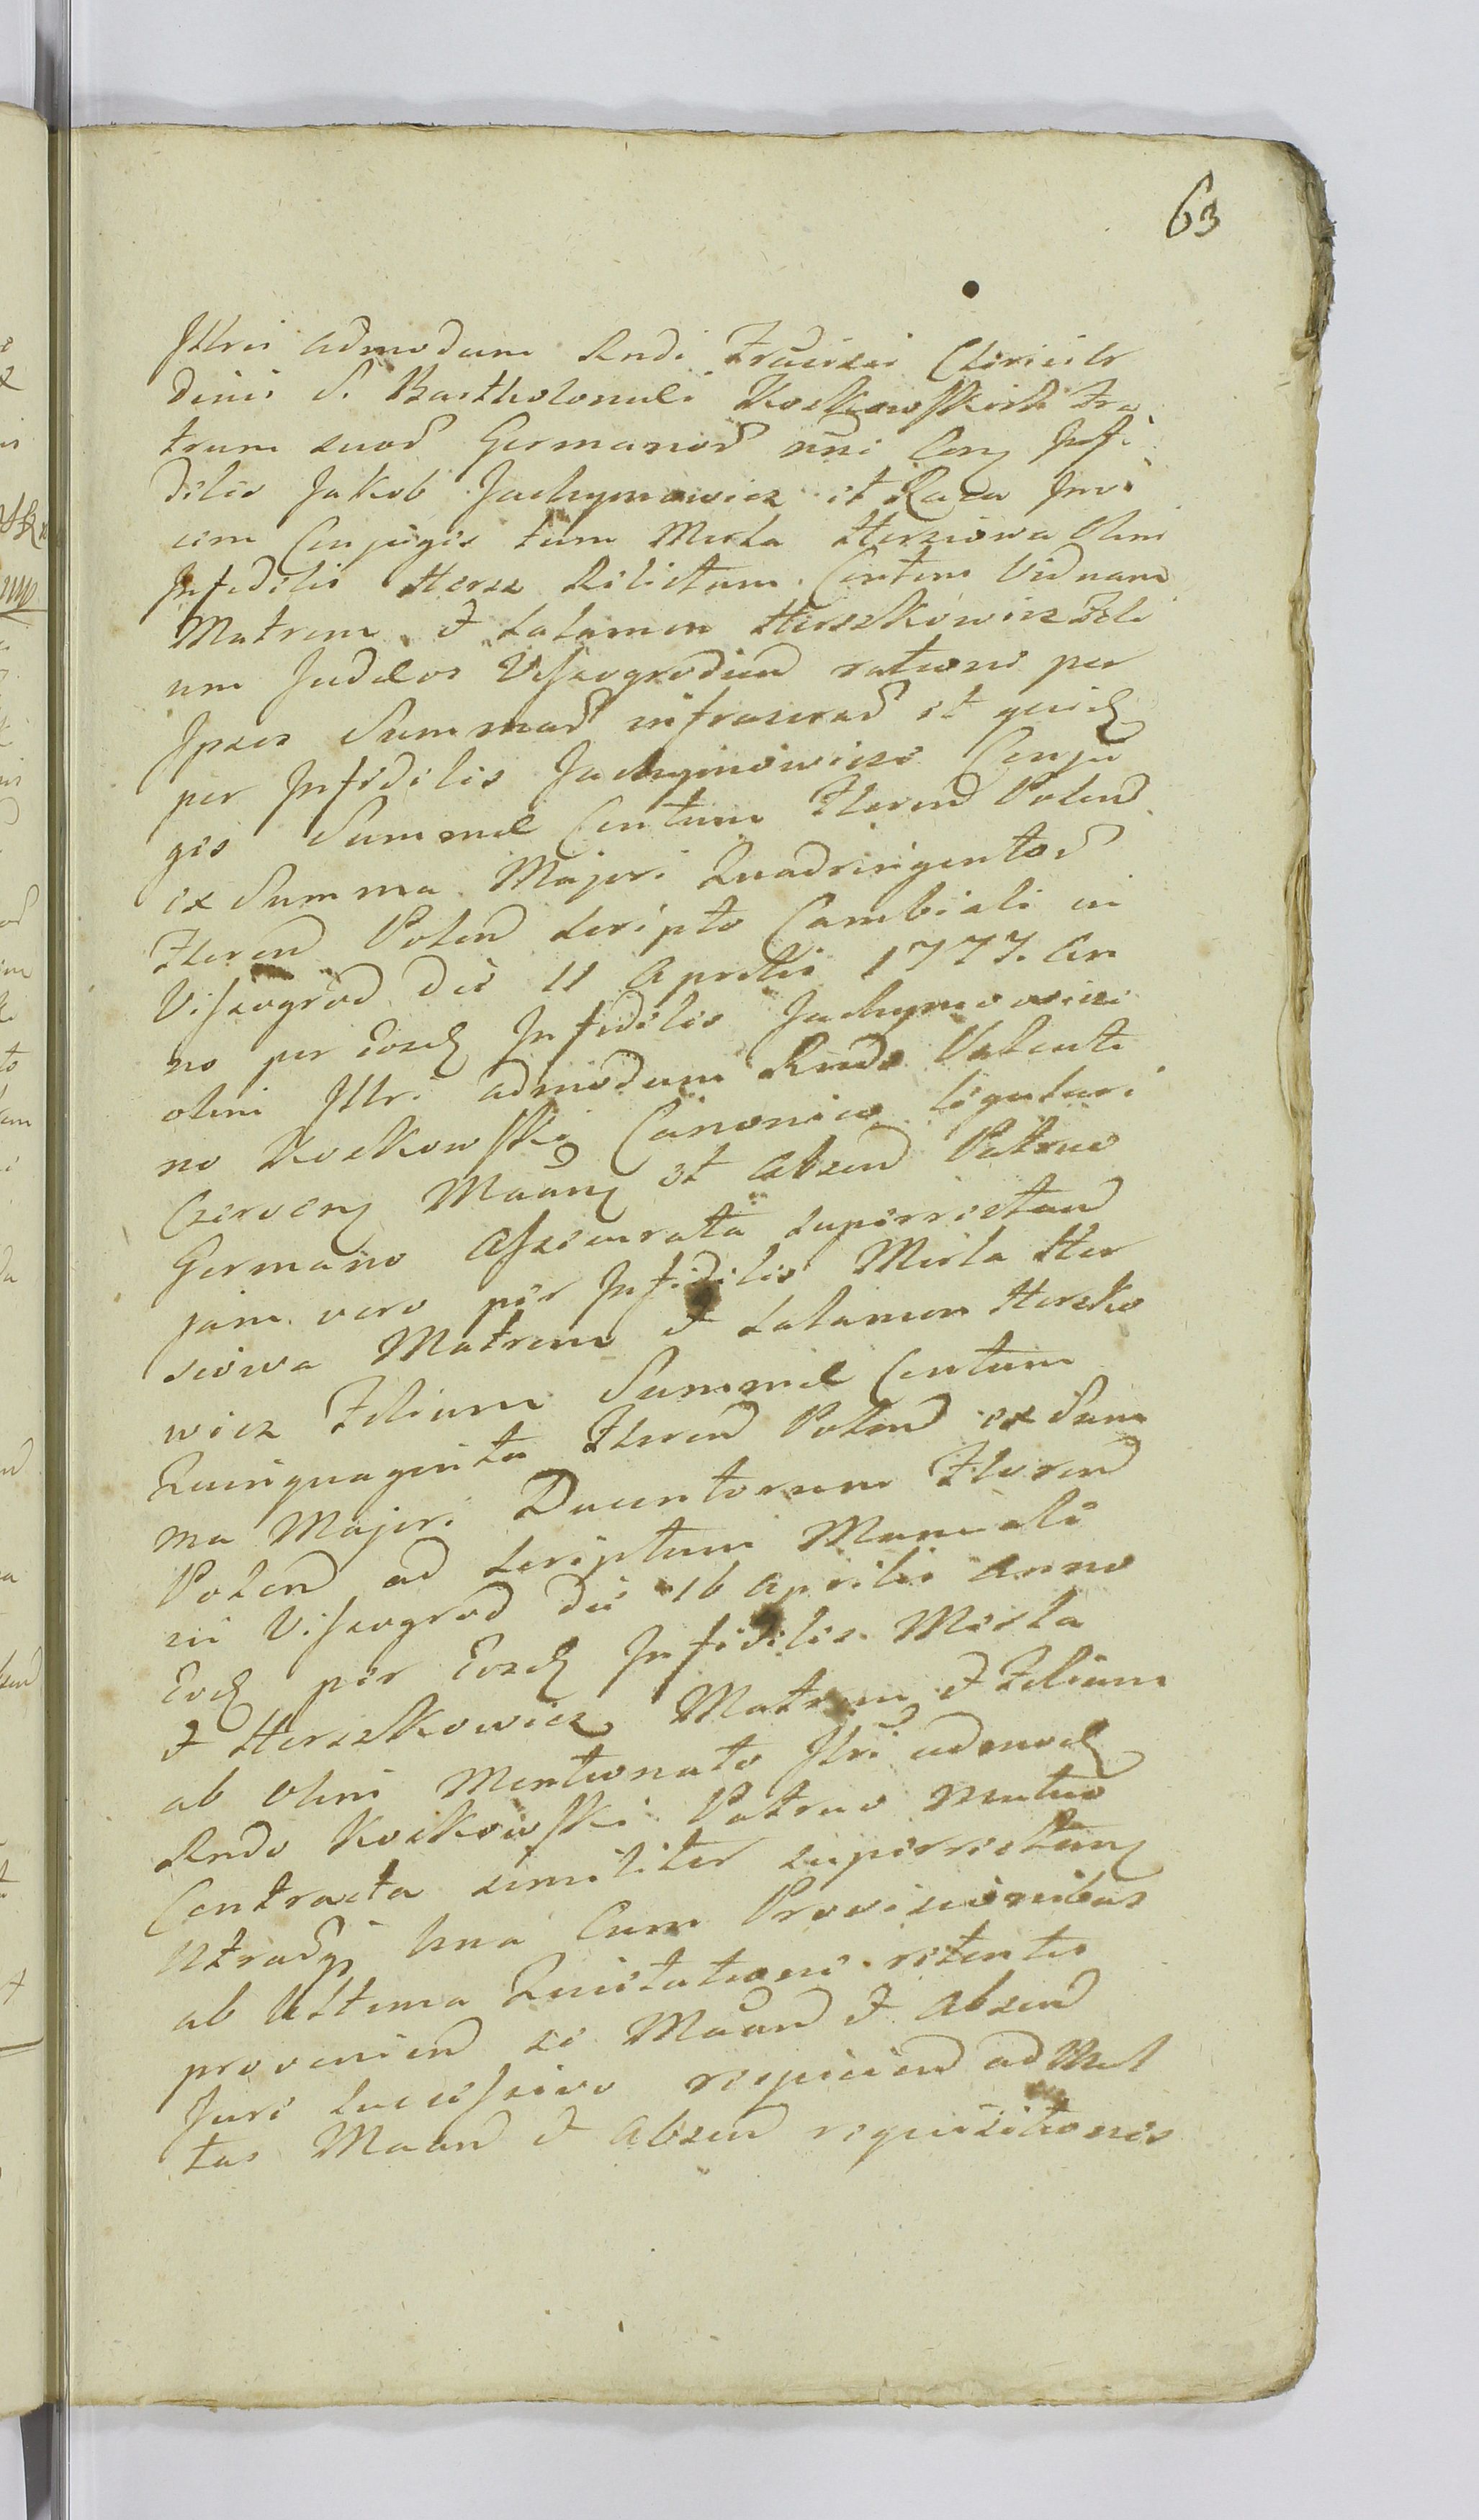 63
Illris admodum Rndi Francisci Clerici Or
dinis S. Bartholomei Koskowskich Fra
trum suoℛ Germanoℛ nni Conq Infi
deles Jakob Jachymowicz et Raca Invi
cem Conjuges tum Mirla Herszowa Olim
Infidelis Hersz Relictam Contem Viduam
Matrem et Salamon Herszkowicz Fili
um Judæos Viszogrodien ratione per
Ipsos Summaℛ infrascraℛ et quidq
per Infideles Jachymowicze Conju
ges Summæ Centum Floren Polon
ex Summa Majori Quadringentoℛ
Floren Polon Scripto Cambiali in
Viszogrod die 11 Aprilis 1777. An
no per Eosdq Infideles Jachymowicze
olim Illri admodum Rndo Valenti
no Koskowski Canonico Regulari
Czervenq Maanq et Absen Patruo
Germano Assecurata superrestan
jam vero per Infideles Mirla Her
szowa Matrem et Salamon Herszko
wicz Filium Summæ Centum
Quinquaginta Floren Polon ex Sum
ma Majori Ducentorum Floren
Polon ad Scriptum Manuale
in Viszogrod die 16 Aprilis Anno
Eodq per Eosdq Infideles Mirla
et Herszkowicz Matrem et Filium
ab Olim Mentionato Illri admodq
Rndo Koskowski Patruo Mutuo
Contracta similiter superrestanq
Utraℛq Una Cum Provisionibus
ab Ultima Quietatione retentis
provenien se Maan et Absen
Jure Successivo respicien ad Mul
tas Maan et Absen requisitiones